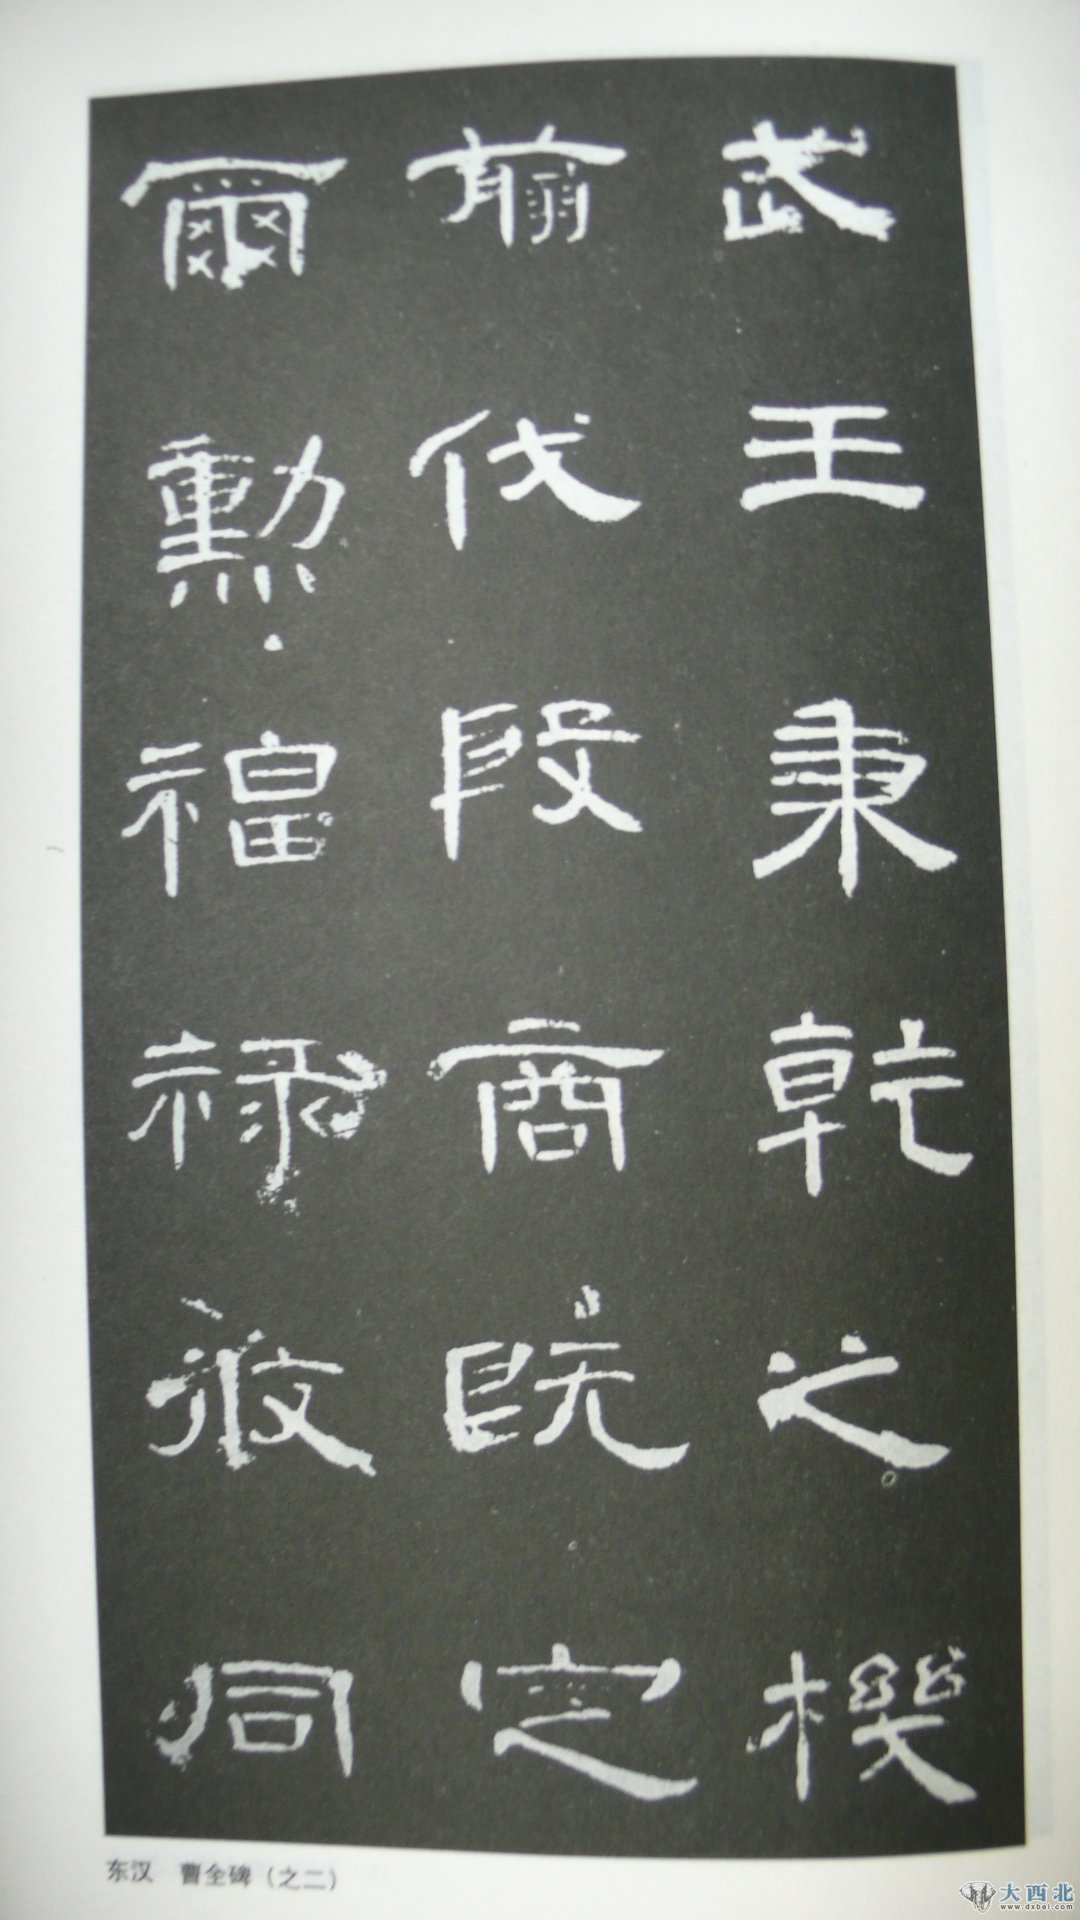 武王秉乾之機
翦伐殷商既定
爾勳福祿攸同
东汉 曹全碑(之二)
大西北
www.dxbei.com